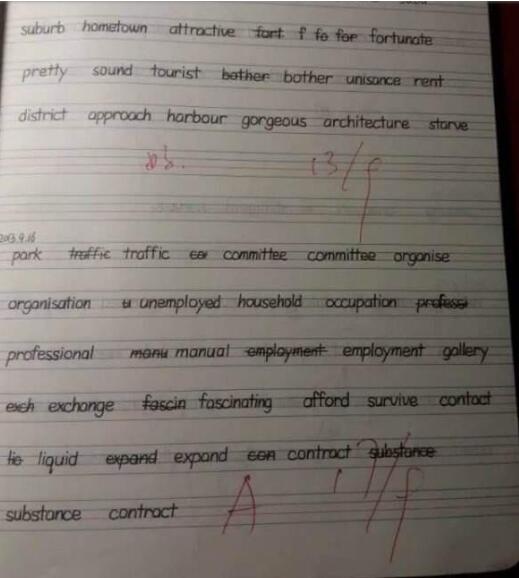 suburb hometown attractive fort f fo for fortunate
pretty sound tourist bother bother unisance rent
district approach harbour gorgeous architecture starve
13/9
2013.9.16
park traffic traffic co committee committee organise
organisation u unemployed household occupation profess
professional manu manual employment employment gallery
exch exchange fascin fascinating afford survive contact
lio liquid expand expand con contract substance
substance contract A 17/9